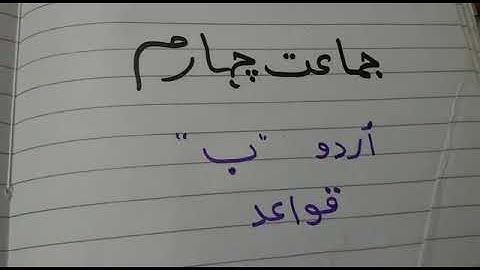 جماعت چہارم
اُردو "ب"
قواعد